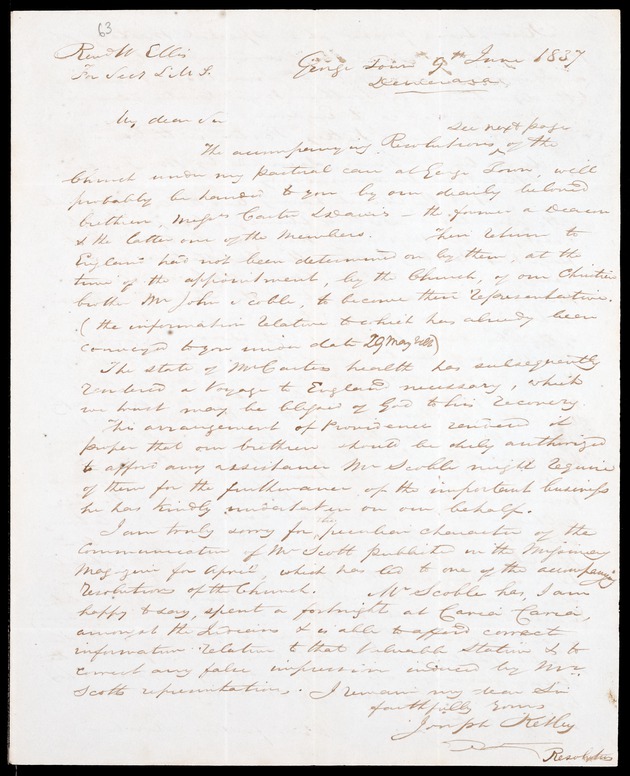 63
Revd W Ellis
For Sect L M S.
George Town 9th June 1837
Demerara
My dear Sir
see next page
The accompanying Resolutions, of the
Church under my pastoral care at George Town, will
probably be handed to you by our dearly beloved
brethren, Messrs Carter & Davis – the former a Deacon
& the latter one of the Members. Their return to
England had not been determined on by them, at the
time of the appointment, by the Church, of our Christian
brother Mr John Scoble, to become their representative.
(the information relative to which has already been
conveyed to you under date 29 May )
The state of Mr Carters health has subsequently
rendered a Voyage to England necessary, which
we trust may be blessed of God to his recovery.
This arrangement of Providence rendered it
proper that our brethren should be duly authorized
to afford any assistance Mr Scoble might require
of them for the furtherance of the important business
he has kindly undertaken on our behalf.
I am truly sorry for the peculiar character of the
Communication of Mr Scott published in the Missionary
Magazine for April, which has led to one of the accompanying
resolutions of the Church. Mr Scoble has, I am
happy to say, spent a fortnight at Caria Caria,
amongst the Indians & is able to afford correct
information relative to that Valuable Station & to
correct any false impression induced by Mr
Scotts representations. I remain my dear Sir
faithfully yours
Joseph Ketley
Resolutions